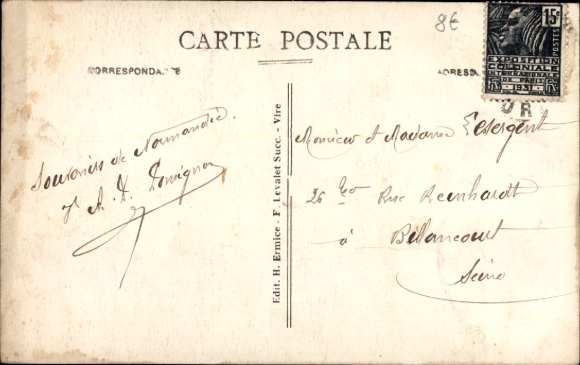 8€
CARTE POSTALE
CORRESPONDANCE
ADRESSE
15c
POSTES
EXPOSITION
COLONIALE
INTERNATIONALE
DE PARIS
1931
UR
Souvenirs de Normandie.
Monsieur et Madame Lesergent
26 bis Rue Reinhardt
à Billancourt
Seine
Edit. H. Ermice - F. Levalet Succ. - Vire